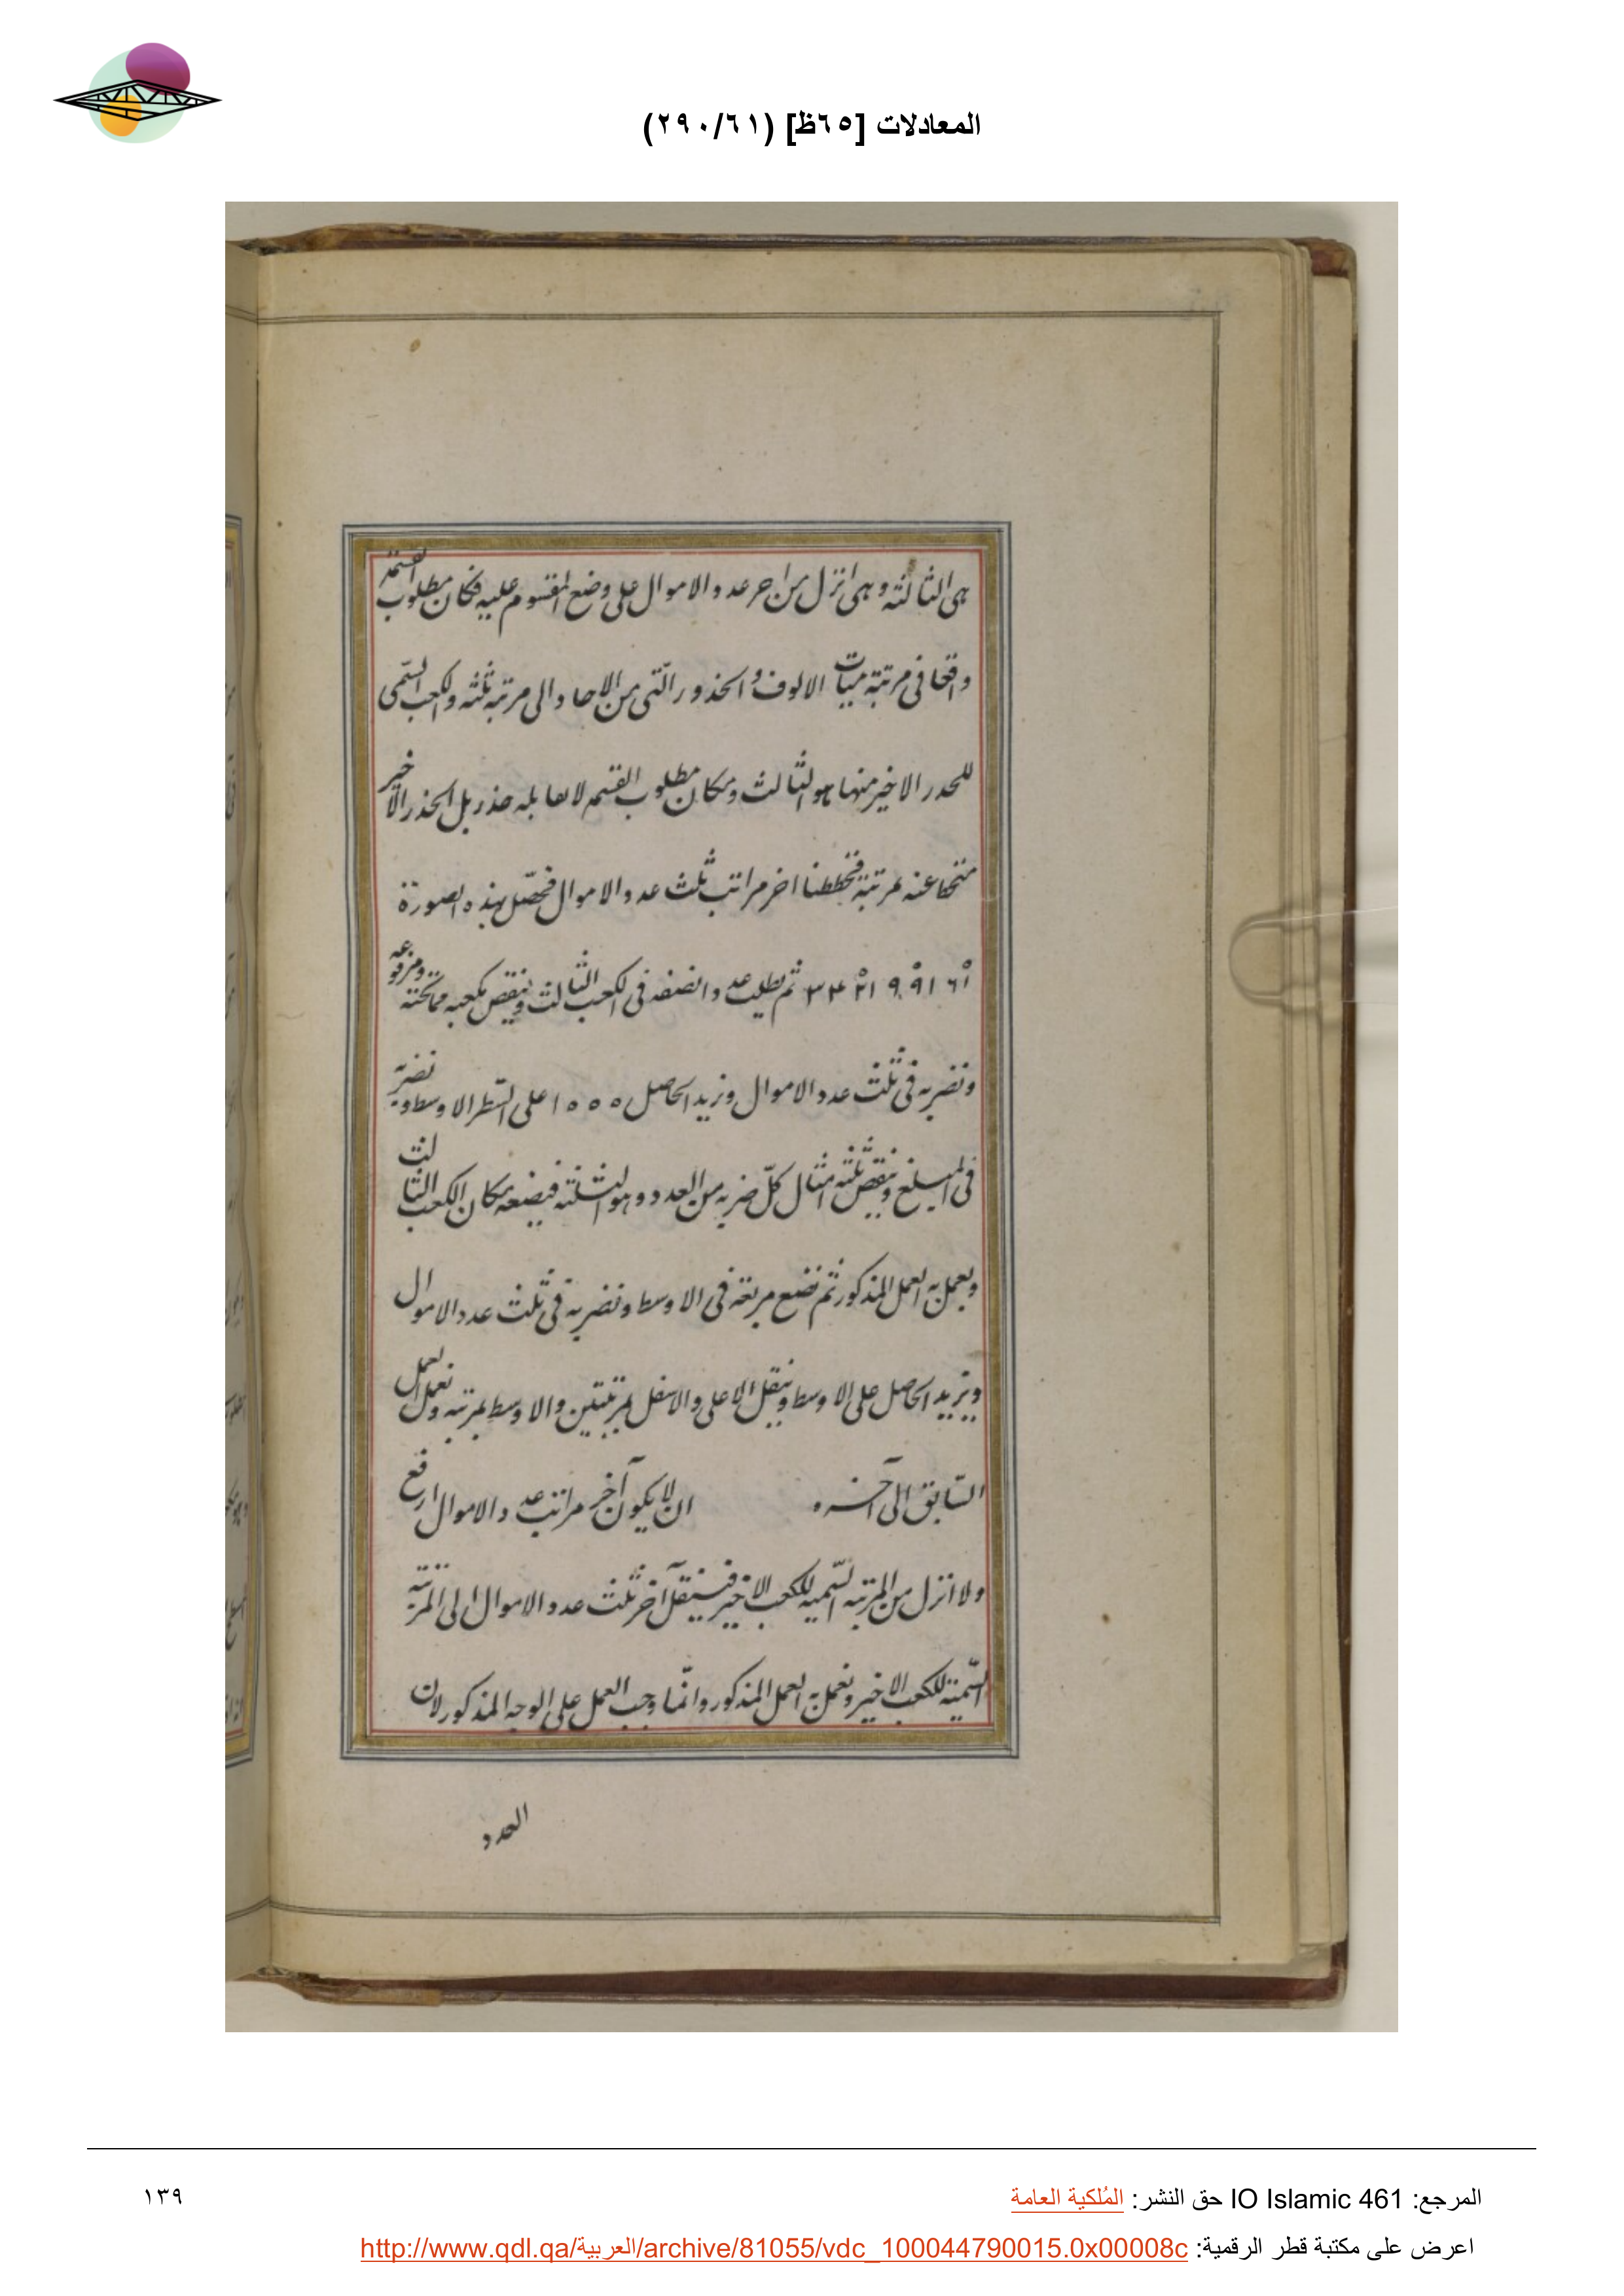 المعادلات [٦٥ظ] (٢٩٠/٦١)
هى الثالثة وهى انزل من اخر عدد الاموال على وضع المقسوم عليه فكان مطلوب القسمة
واقعا فى مرتبة ميات الالوف والجذور التى من الاحاد الى مرتبة ثلثه والكعب السمى
للجذر الاخير منها هو الثالث ومكان مطلوب القسم لا يقابله جذر بل الجذر الاخير
منحط عنه لمرتبة فحططنا اخر مراتب ثلث عدد الاموال فحصل بهذه الصورة
ثم نطلب عددا نضعه فى الكعب الثالث وننقص مكعبه مما تحته ومرفوعه
ونضربه فى ثلث عدد الاموال ونزيد الحاصل على السطر الاوسط ونضربه
فى المبلغ وننقص ثلثة امثال كل ضربه من العدد وهو الثلثة فيضعه مكان الكعب الثالث
ويعمل به العمل المذكور ثم نضع مربعه فى الاوسط ونضربه فى ثلث عدد الاموال
ونزيد الحاصل على الاوسط وننقل الاعلى والاسفل لمرتبتين والاوسط بمرتبة ونعمل العمل
السابق الى آخره ان لا يكون آخر مراتب عدد الاموال ارفع
ولا انزل من المرتبة السمية للكعب الاخير فينقل آخر ثلث عدد الاموال الى المرتبة
السمية للكعب الاخير ونعمل به العمل المذكور وانما وجب العمل على الوجه المذكور لان
العدد
المرجع: IO Islamic 461 حق النشر: المُلكية العامة
١٣٩
اعرض على مكتبة قطر الرقمية: http://www.qdl.qa/العربية/archive/81055/vdc_100044790015.0x00008c